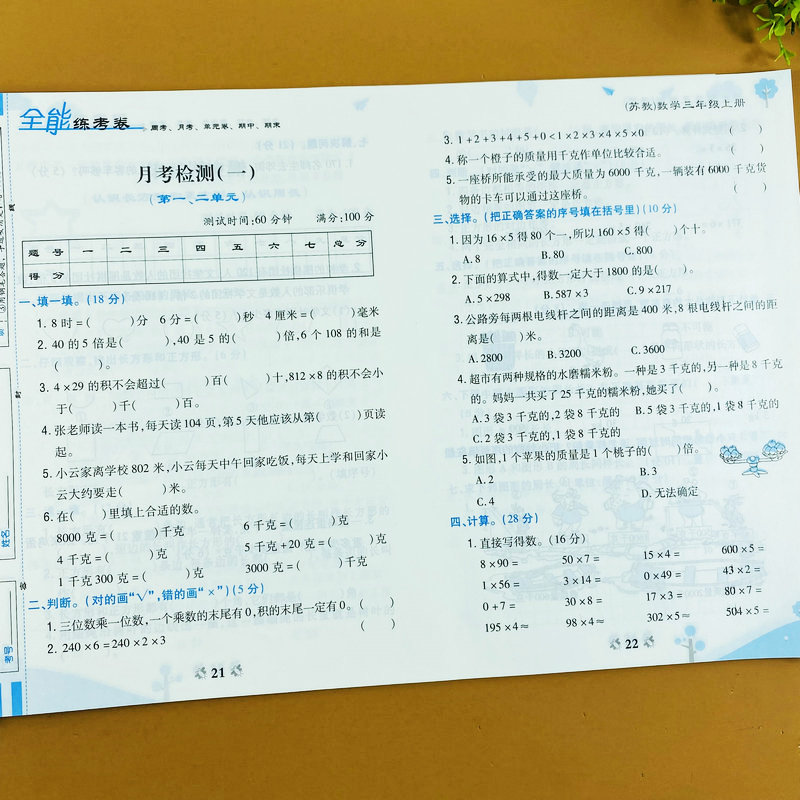 全能练考卷 周考、月考、单元卷、期中、期末
月考检测(一)
(第一、二单元)
测试时间:60分钟 满分:100分
题号 一 二 三 四 五 六 七 总分
得分
一、填一填。(18分)
1. 8时=( )分 6分=( )秒 4厘米=( )毫米
2. 40的5倍是( ),40是5的( )倍,6个108的和是
( )。
3. 4×29的积不会超过( )百( )十,812×8的积不会小
于( )千( )百。
4. 张老师读一本书,每天读104页,第5天他应该从第( )页读
起。
5. 小云家离学校802米,小云每天中午回家吃饭,每天上学和回家小
云大约要走( )米。
6. 在( )里填上合适的数。
8000克=( )千克 6千克=( )克
4千克=( )克 5千克+20克=( )克
1千克300克=( )克 3000克=( )千克
二、判断。(对的画“√”,错的画“×”)(5分)
1. 三位数乘一位数,一个乘数的末尾有0,积的末尾一定有0。( )
2. 240×6=240×2×3 ( )
21
(苏教)数学三年级上册
3. 1+2+3+4+5+0<1×2×3×4×5×0 ( )
4. 称一个橙子的质量用千克作单位比较合适。 ( )
5. 一座桥所能承受的最大质量为6000千克,一辆装有6000千克货
物的卡车可以通过这座桥。 ( )
三、选择。(把正确答案的序号填在括号里)(10分)
1. 因为16×5得80个一,所以160×5得( )个十。
A. 8 B. 80 C. 800
2. 下面的算式中,得数一定大于1800的是( )。
A. 5×298 B. 587×3 C. 9×217
3. 公路旁每两根电线杆之间的距离是400米,8根电线杆之间的距
离是( )米。
A. 2800 B. 3200 C. 3600
4. 超市有两种规格的水磨糯米粉。一种是3千克的,另一种是8千克
的。妈妈一共买了25千克的糯米粉,她买了( )。
A. 3袋3千克的,2袋8千克的 B. 5袋3千克的,1袋8千克的
C. 2袋3千克的,1袋8千克的
5. 如图,1个苹果的质量是1个桃子的( )倍。
A. 2 B. 3
C. 4 D. 无法确定
四、计算。(28分)
1. 直接写得数。(16分)
8×90= 50×7= 15×4= 600×5=
1×56= 3×14= 0×49= 43×2=
0+7= 30×8= 17×3= 80×7=
195×4≈ 98×4≈ 302×5≈ 504×5≈
22
姓名
考号